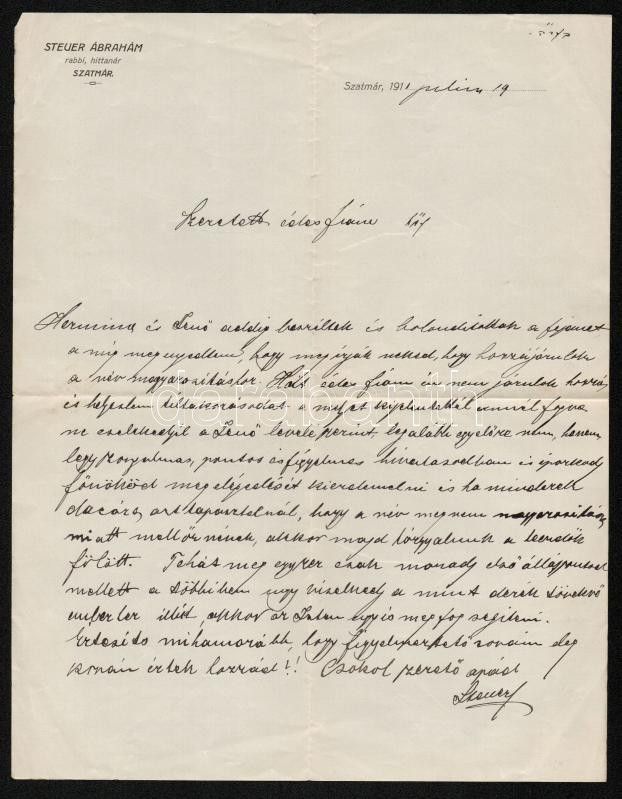 STEUER ÁBRAHÁM
rabbi, hittanár
SZATMÁR.
Szatmár, 1911 julius 19
Szeretett édes fiam
Hermina és Jenő addig beszéltek és bolondítottak a fejemet
a míg megengedtem, hogy megírják neked, hogy hozzájárulok
a név magyarosításhoz. Hát édes fiam én nem járulok hozzá,
és helyeslem álláspontodat a melyet kijelentettél ennél fogva
ne cselekedjél a Jenő levele szerint, legalább egyelőre nem, hanem
légy szorgalmas, pontos és figyelmes hivatásodban és iparkodj
főnökeid megelégedését kiérdemelni és ha mindezek
dacára azt tapasztalnád, hogy a név meg nem magyarosítása
miatt mellőznének, akkor majd tárgyalunk a teendők
fölött. Tehát még egyszer csak maradj első álláspontod
mellett a többiben úgy viselkedj a mint derék törekvő
emberhez illik, akkor az Isten úgy is meg fog segíteni.
Értesíts mihamarább, hogy figyelmeztető soraim elég
korán értek hozzád!! Csókol szerető apád
Steuer
darabanth